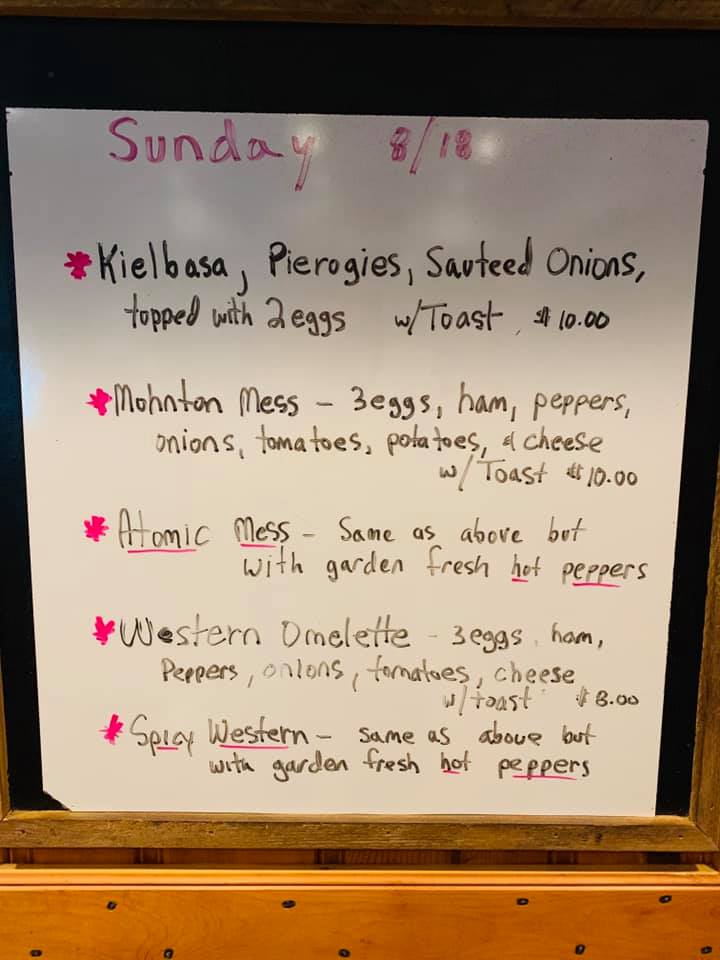 Sunday 8/18
* Kielbasa, Pierogies, Sauteed Onions,
topped with 2eggs w/Toast $10.00
* Mohnton Mess - 3eggs, ham, peppers,
onions, tomatoes, potatoes, & cheese
w/Toast $10.00
* Atomic Mess - Same as above but
with garden fresh hot peppers
* Western Omelette - 3eggs, ham,
Peppers, onions, tomatoes, cheese
w/toast $8.00
* Spicy Western - same as above but
with garden fresh hot peppers